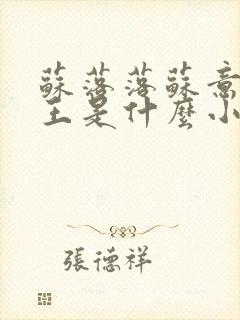 蘇落落蘇意
主是什麼小
張德祥